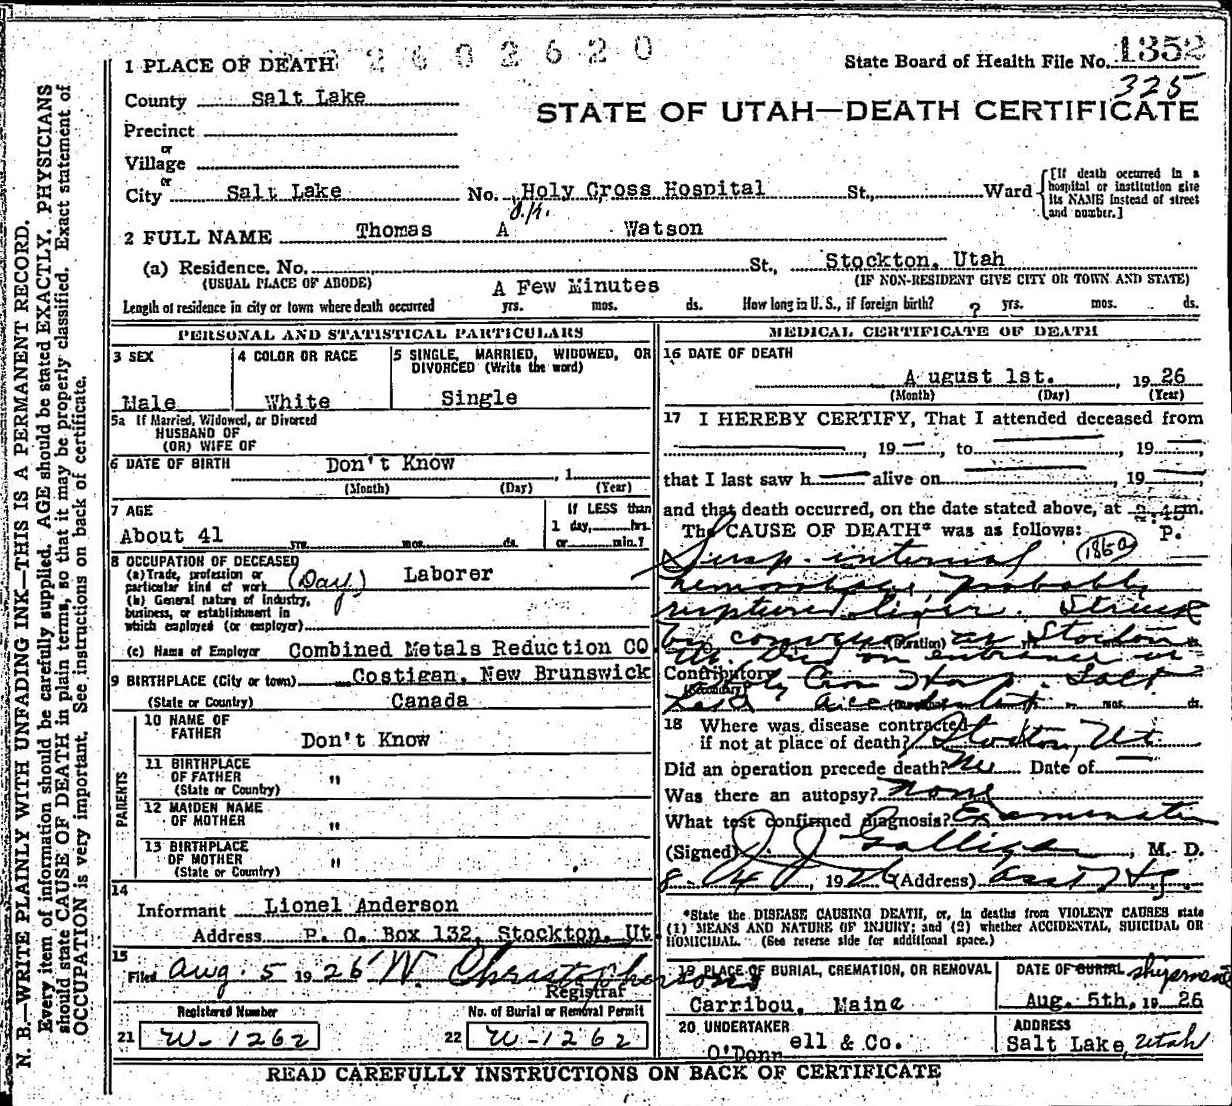 2602620
1 PLACE OF DEATH
State Board of Health File No. 1352
325
County Salt Lake
STATE OF UTAH—DEATH CERTIFICATE
Precinct
or
Village
or
City Salt Lake No. Holy Cross Hospital St., Ward
[If death occurred in a hospital or institution give its NAME instead of street and number.]
2 FULL NAME Thomas A Watson
(a) Residence, No. St., Stockton, Utah
(USUAL PLACE OF ABODE) (IF NON-RESIDENT GIVE CITY OR TOWN AND STATE)
A Few Minutes
Length of residence in city or town where death occurred yrs. mos. ds. How long in U. S., if foreign birth? ? yrs. mos. ds.
PERSONAL AND STATISTICAL PARTICULARS
3 SEX
Male
4 COLOR OR RACE
White
5 SINGLE, MARRIED, WIDOWED, OR
DIVORCED (Write the word)
Single
5a If Married, Widowed, or Divorced
HUSBAND OF
(OR) WIFE OF
6 DATE OF BIRTH Don't Know , 1
(Month) (Day) (Year)
7 AGE
About 41 yrs. mos. ds.
If LESS than
1 day, hrs.
or min.?
8 OCCUPATION OF DECEASED
(a) Trade, profession or
particular kind of work (Day) Laborer
(b) General nature of Industry,
business, or establishment in
which employed (or employer)
(c) Name of Employer Combined Metals Reduction CO.
9 BIRTHPLACE (City or town) Costigan, New Brunswick
(State or Country) Canada
PARENTS
10 NAME OF
FATHER Don't Know
11 BIRTHPLACE
OF FATHER "
(State or Country)
12 MAIDEN NAME
OF MOTHER "
13 BIRTHPLACE
OF MOTHER "
(State or Country)
14
Informant Lionel Anderson
Address P. O. Box 132, Stockton, Ut
15
Filed Aug. 5 1926 W. Christopherson
Registrar
Registered Number
21 W-1262
No. of Burial or Removal Permit
22 W-1262
MEDICAL CERTIFICATE OF DEATH
16 DATE OF DEATH
August 1st. , 1926
(Month) (Day) (Year)
17 I HEREBY CERTIFY, That I attended deceased from
, 19 , to , 19 ,
that I last saw h alive on , 19
and that death occurred, on the date stated above, at 2:45 m.
The CAUSE OF DEATH* was as follows: P.
Susp. internal 186a
hemorrhage, probably
ruptured liver. Struck
by conveyor at Stockton
(Duration)
Ut. Died on entrance at
Contributory
(Secondary)
Holy Cross Hosp. Salt
Lake accident
mos. ds.
18 Where was disease contracted
if not at place of death? Stockton, Ut.
Did an operation precede death? No Date of
Was there an autopsy? none
What test confirmed diagnosis? Examination
(Signed) J. J. Galligan , M. D.
8 - 4 , 1926 (Address)
*State the DISEASE CAUSING DEATH, or, in deaths from VIOLENT CAUSES state
(1) MEANS AND NATURE OF INJURY; and (2) whether ACCIDENTAL, SUICIDAL OR
HOMICIDAL. (See reverse side for additional space.)
19 PLACE OF BURIAL, CREMATION, OR REMOVAL
Carribou, Maine
DATE OF BURIAL shipment
Aug. 5th, 1926
20 UNDERTAKER
O'Donnell & Co.
ADDRESS
Salt Lake, Utah
READ CAREFULLY INSTRUCTIONS ON BACK OF CERTIFICATE
N. B.—WRITE PLAINLY WITH UNFADING INK—THIS IS A PERMANENT RECORD.
Every item of information should be carefully supplied. AGE should be stated EXACTLY. PHYSICIANS
should state CAUSE OF DEATH in plain terms, so that it may be properly classified. Exact statement of
OCCUPATION is very important. See instructions on back of certificate.